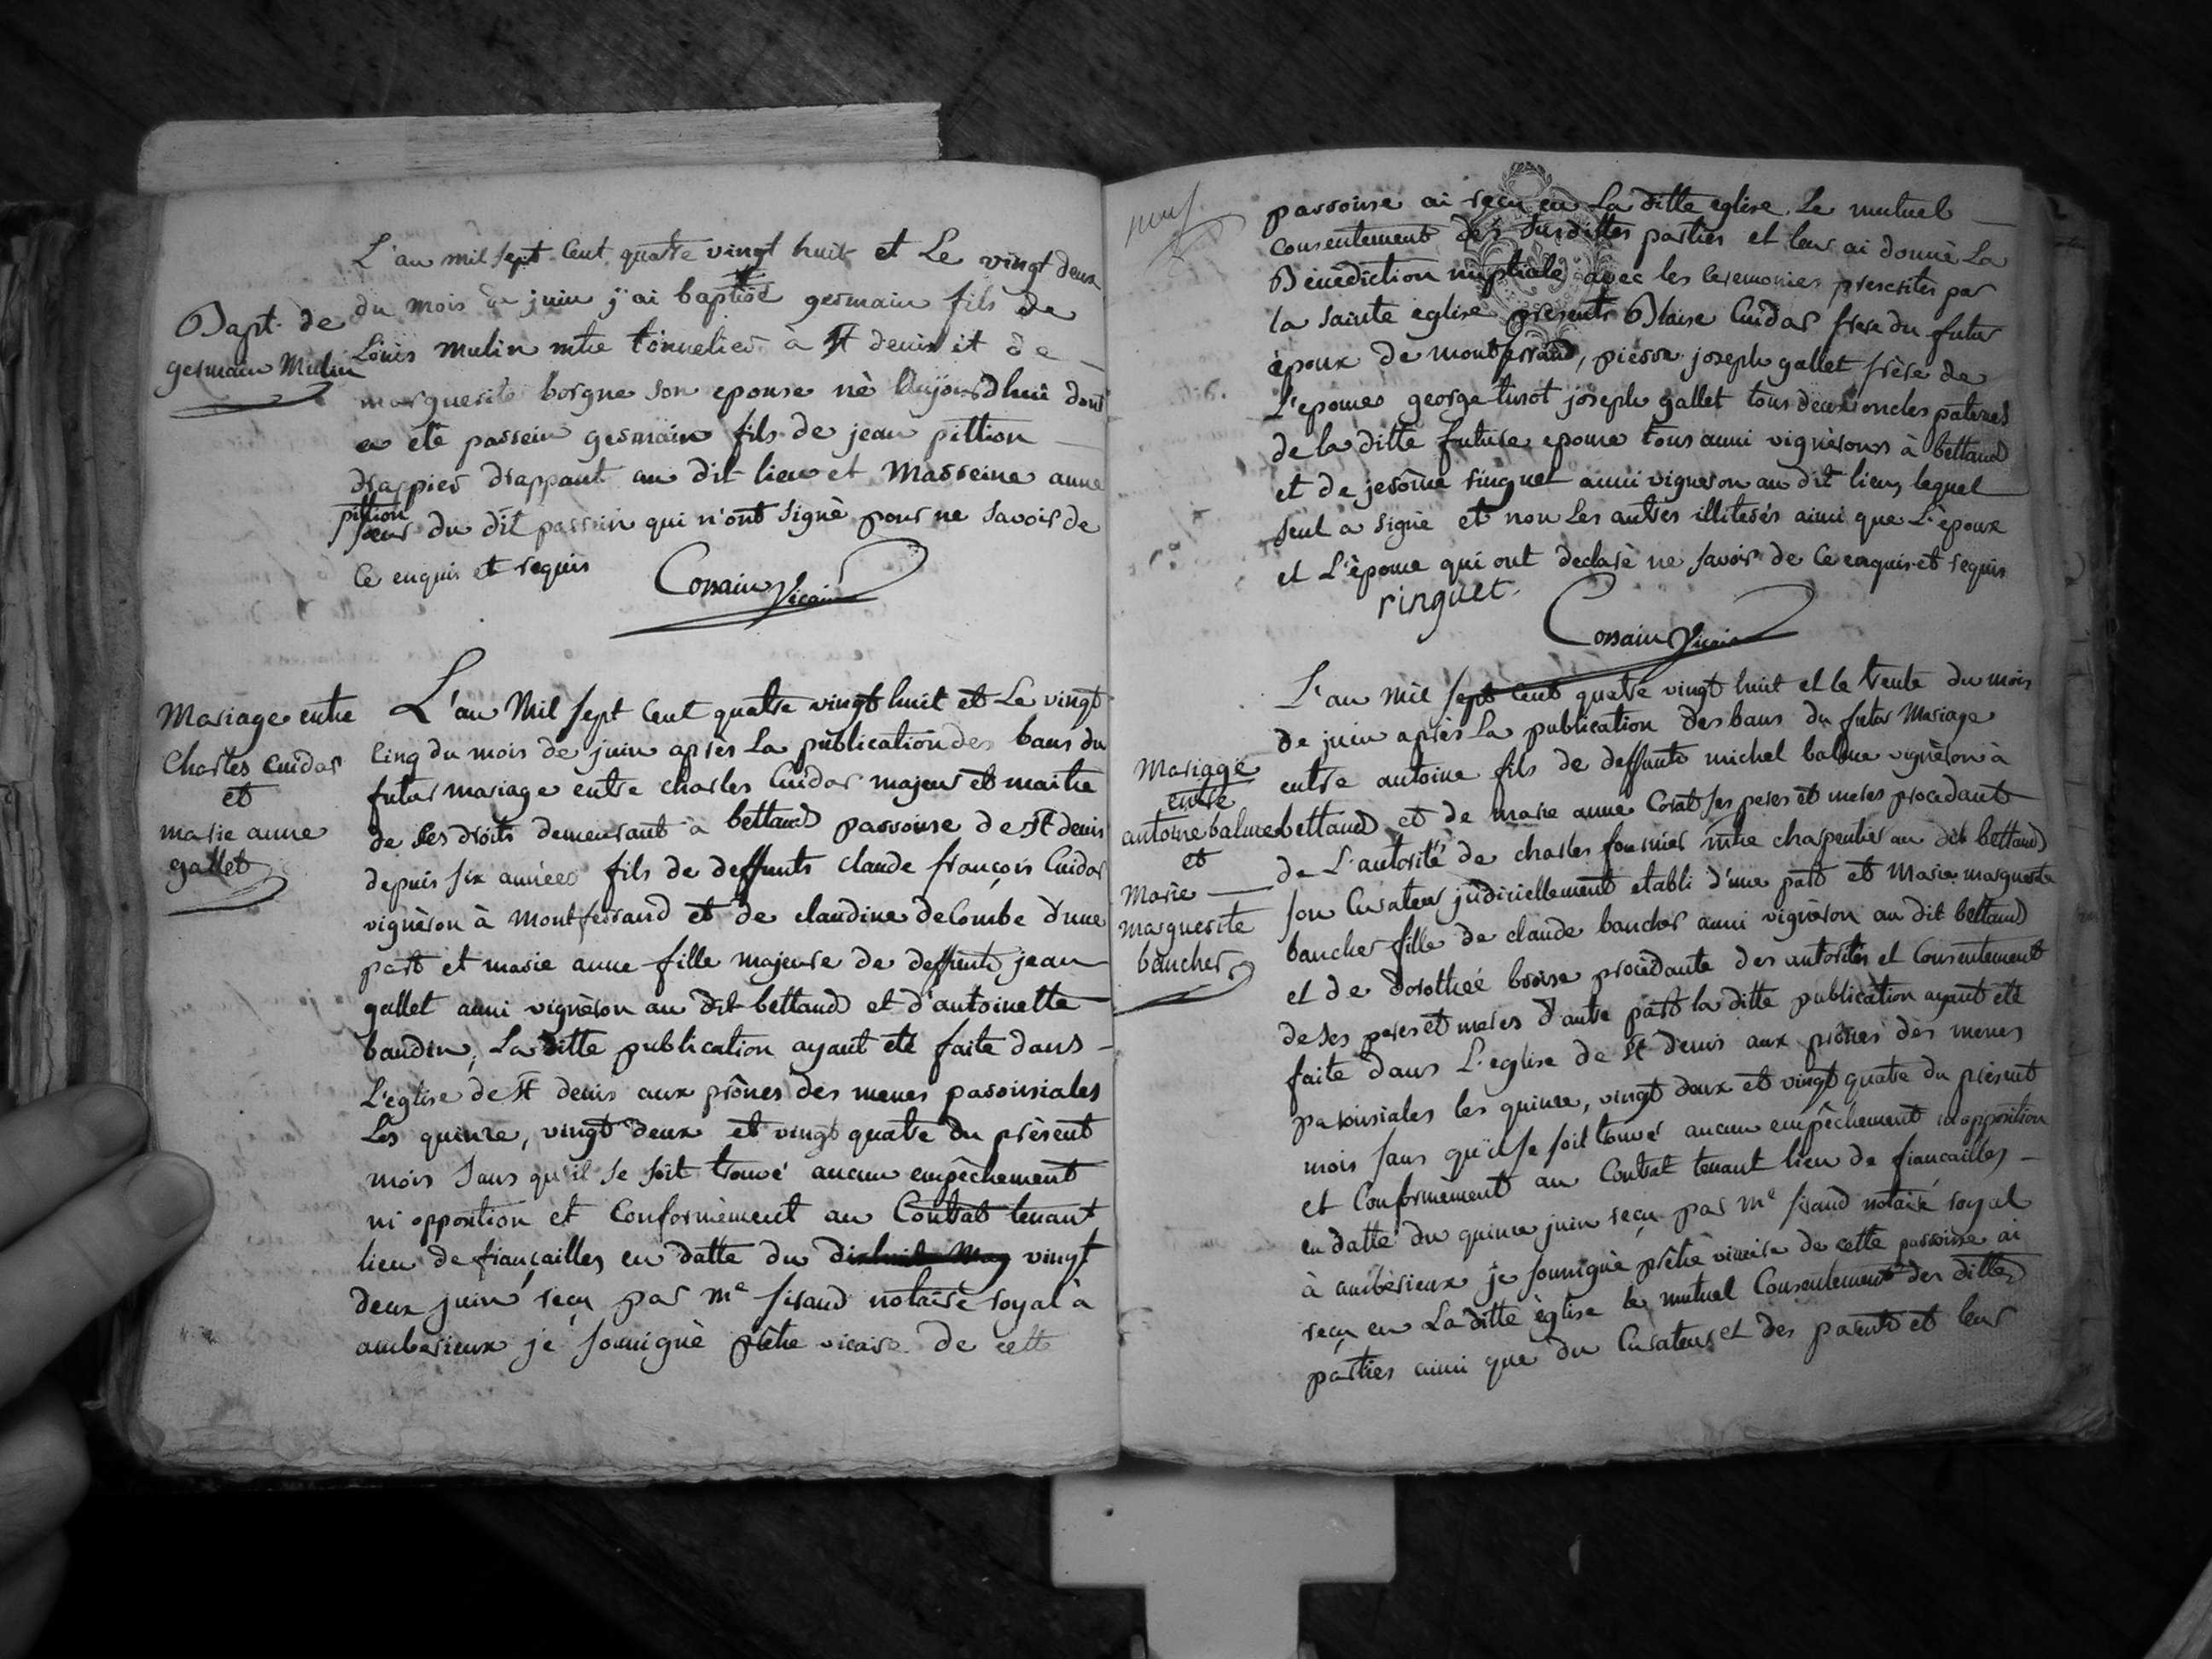 Bapt. de
germain Mulin
L'an mil sept cent quatre vingt huit et Le vingt deux
du mois de juin j'ai baptisé germain fils de
Loüis mulin mtre tonnelier à St denis et de
marguerite borgne son epouse né aujourdhui dont
a été parrein germain fils de jean pittion
drappier drappant au dit lieu et Marreine anne
pittion
soeur du dit parrein qui n'ont signé pour ne savoir de
ce enquis et requis
Cossain Vicaire
Mariage entre
Charles Cuidar
et
marie anne
gallet
L'an Mil sept cent quatre vingt huit et Le vingt
cinq du mois de juin après La publication des bans du
futur mariage entre charles Cuidar majeur et maitre
de ses droits demeurant à bettand parroisse de St denis
depuis six années fils de deffunts claude françois Cuidar
vignèron à montferrand et de claudine delombe d'une
part et marie anne fille majeure de deffunts jean
gallet aussi vignèron au dit bettand et d'antoinette
baudin, La ditte publication ayant eté faite dans
L'eglise de St denis aux prônes des messes paroissiales
Les quinze, vingt deux et vingt quatre du présent
mois sans qu'il se soit trouvé aucun empêchement
ni opposition et Conformément au Contrat tenant
lieu de fiançailles en datte du dixhuit May vingt
deux juin reçu par me sirand notaire royal à
amberieux je soussigné prêtre vicaire de cette
neuf
parroisse ai reçu en La ditte eglise Le mutuel
consentement des susdittes parties et leur ai donné La
Bénédiction nuptiale avec les ceremonies prescrites par
la sainte église présents Blaise Cuidar frere du futur
époux de montferrand, pierre joseph gallet frère de
L'epouse george turot joseph gallet tous deux oncles paternels
de la ditte future epouse tous aussi vignèrons à bettand
et de jerôme ringuet aussi vigneron au dit lieu, lequel
seul a signé et non Les autres illiterés ainsi que L'époux
et L'épouse qui ont declaré ne savoir de ce enquis et requis
ringuet.
Cossain Vicaire
Mariage
entre
antoine balme
et
Marie
marguerite
baucher
L'an mil sept cent quatre vingt huit et le trente du mois
de juin après La publication des bans du futur Mariage
entre antoine fils de deffunts michel balme vignèron à
bettand et de marie anne Corat ses peres et meres procedant
de L'autorité de charles fournier mtre charpentier au dit bettand
son Curateur judiciellement etabli d'une part et Marie marguerite
baucher fille de claude baucher aussi vignèron au dit bettand
et de dorothée broise procèdante des autorités et Consentement
de ses peres et meres d'autre part la ditte publication ayant été
faite dans L'eglise de St denis aux prônes des messes
paroissiales les quinze, vingt deux et vingt quatre du présent
mois sans qu'il se soit trouvé aucun empêchement ni opposition
et Conformèment au Contrat tenant lieu de fiancailles
en datte du quinze juin reçu par me sirand notaire royal
à ambérieux je soussigné prêtre vicaire de cette parroisse ai
reçu en La ditte église le mutuel Consentement des dittes
parties ainsi que du Curateur et des parents et leur